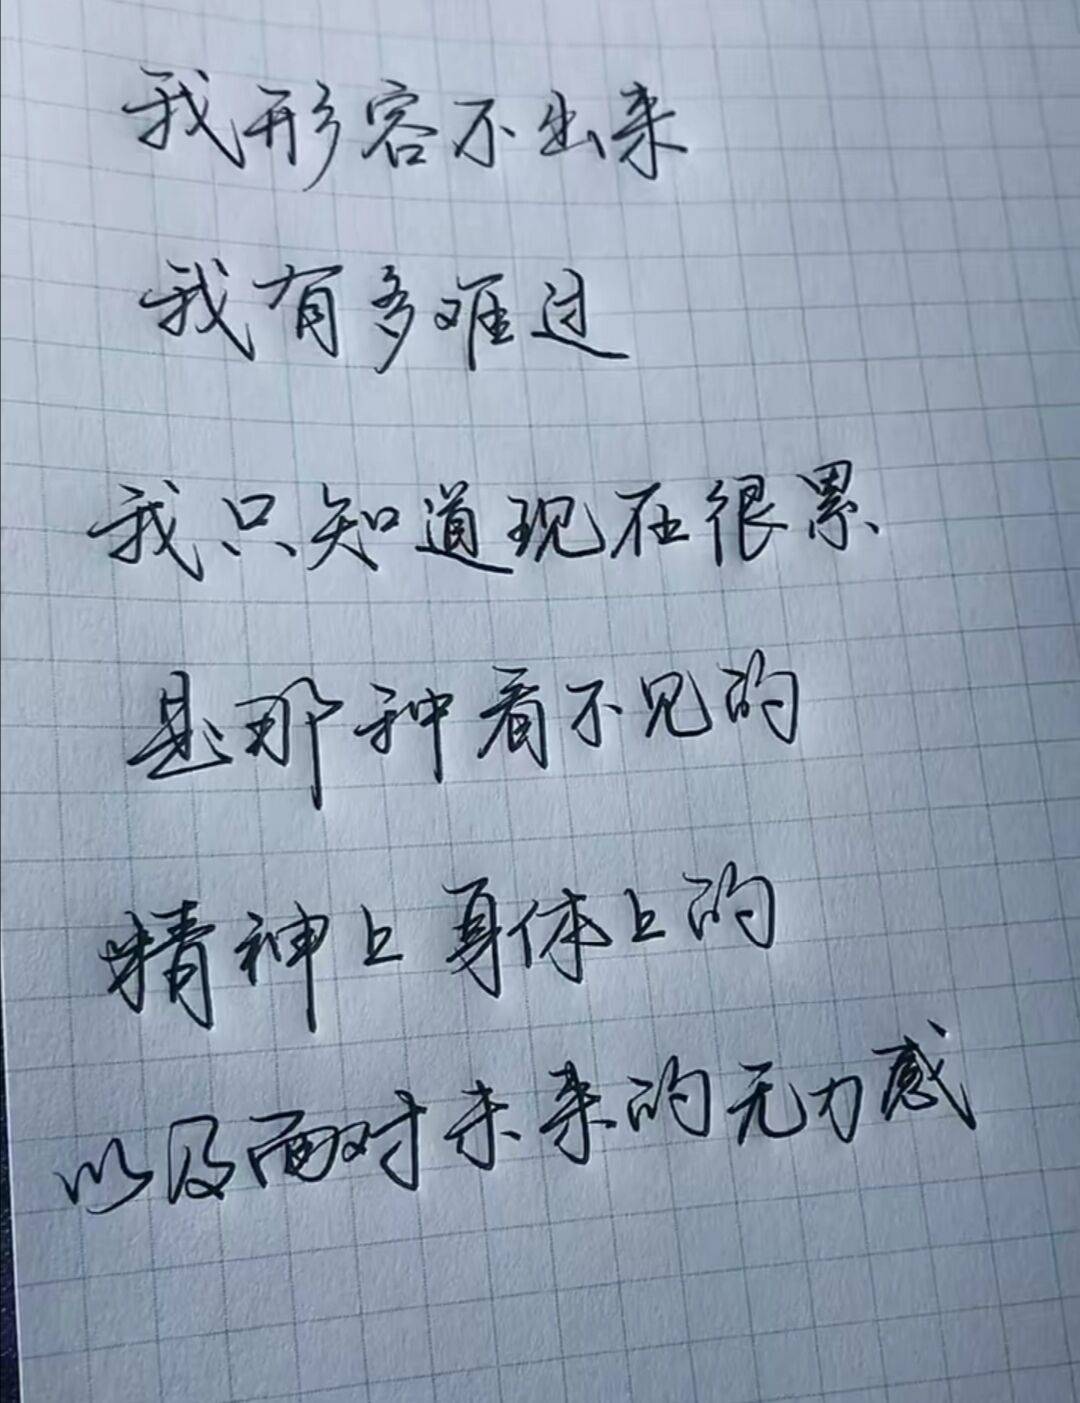 我形容不出来
我有多难过
我只知道现在很累
是那种看不见的
精神上身体上的
以及面对未来的无力感